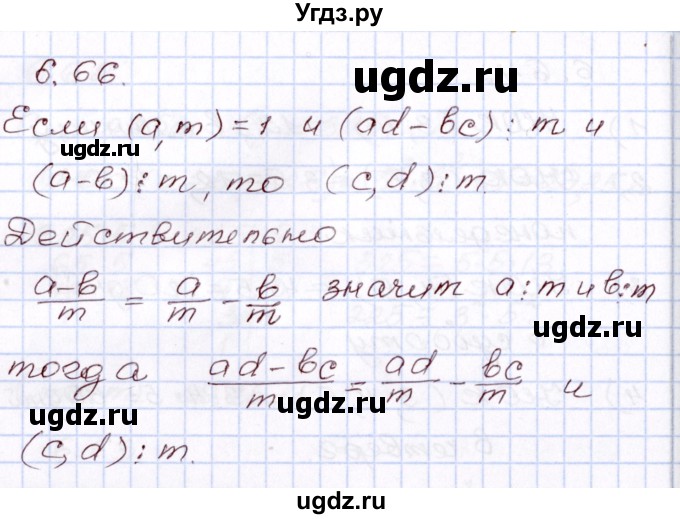 Угдз.ру
6.66.
ugdz.ru
Если (a,m)=1 и (ad-bc)⋮m и
ugdz.ru
(a-b)⋮m, то (c,d)⋮m.
Действительно
a-b/m = a/m - b/m значит a⋮m и b⋮m
ugdz.ru
тогда ad-bc/m = ad/m - bc/m и
ugdz.ru
(c,d)⋮m.
ugdz.ru
ugdz.ru